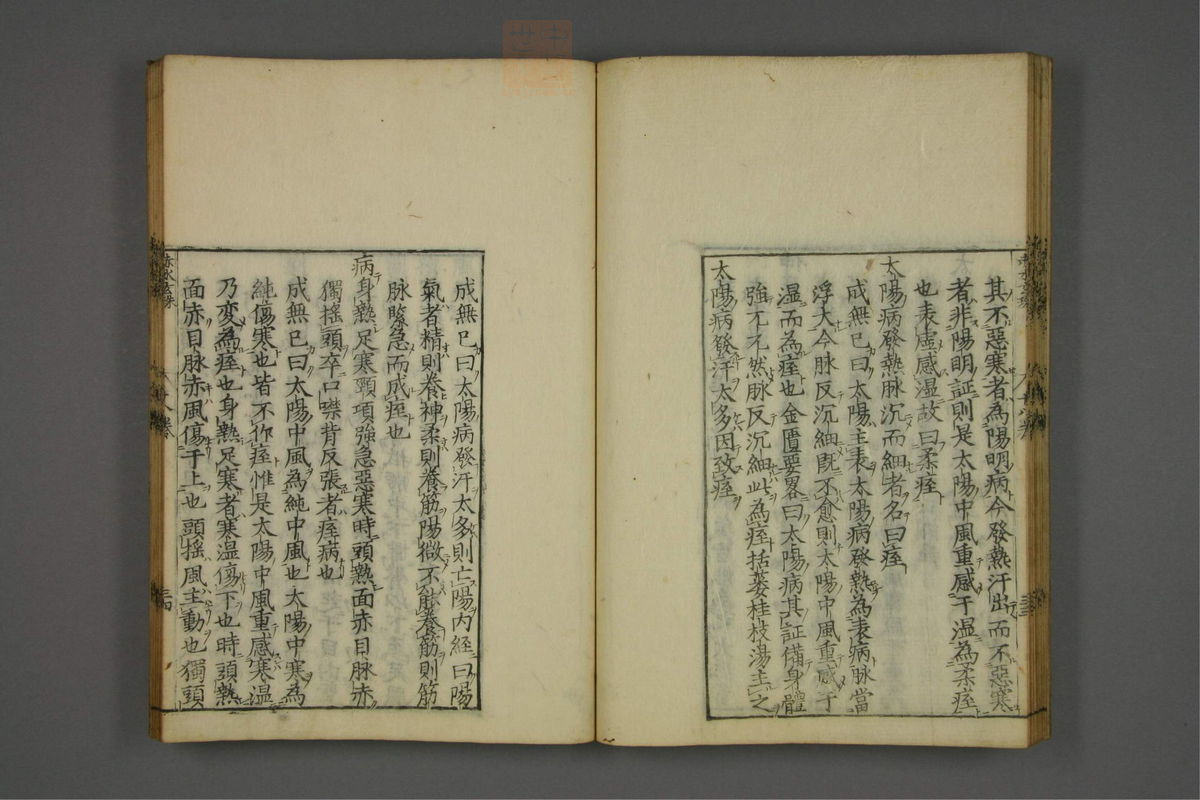 其不惡寒者為陽明病今發熱汗出而不惡寒
者非陽明証則是太陽中風重感于湿為柔痓
也表虚感湿故曰柔痓
太陽病發熱脉沉而細者名曰痓
成無已曰太陽主表太陽病發熱為表病脉當
浮大今脉反沉細既不愈則太陽中風重感于
湿而為痓也金匱要畧曰太陽病其証備身體
強兀兀然脉反沉細此為痓括蔞桂枝湯主之
太陽病發汗太多因致痓
成無已曰太陽病發汗太多則亡陽内経曰陽
氣者精則養神柔則養筋陽微不能養筋則筋
脉緊急而成痓也
病身熱足寒頸項強急惡寒時頭熱面赤目脉赤
獨揺頭卒口噤背反張者痓病也
成無已曰太陽中風為純中風也太陽中寒為
純傷寒也皆不作痓惟是太陽中風重感寒温
乃変為痓也身熱足寒者寒湿傷下也時頭熱
面赤目脉赤風傷于上也頭揺風主動也獨頭